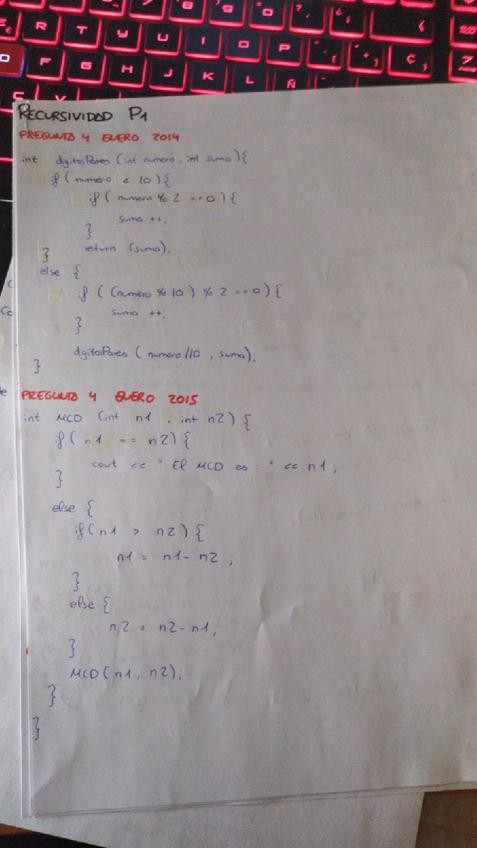 R T Y U I O P
F G H J K L Ñ
RECURSIVIDAD P1
PREGUNTA 4 ENERO 2014
int digitosPares (int numero, int suma){
if (numero < 10){
if (numero % 2 == 0){
suma ++;
}
return (suma);
}
else {
if ( (numero % 10 ) % 2 == 0){
suma ++;
}
digitosPares ( numero//10 , suma);
}
PREGUNTA 4 ENERO 2015
int MCD (int n1 , int n2) {
if( n1 == n2) {
cout << " El MCD es : " << n1 ;
}
else {
if(n1 > n2) {
n1 = n1- n2 ;
}
else {
n2 = n2- n1;
}
MCD(n1, n2);
}
}